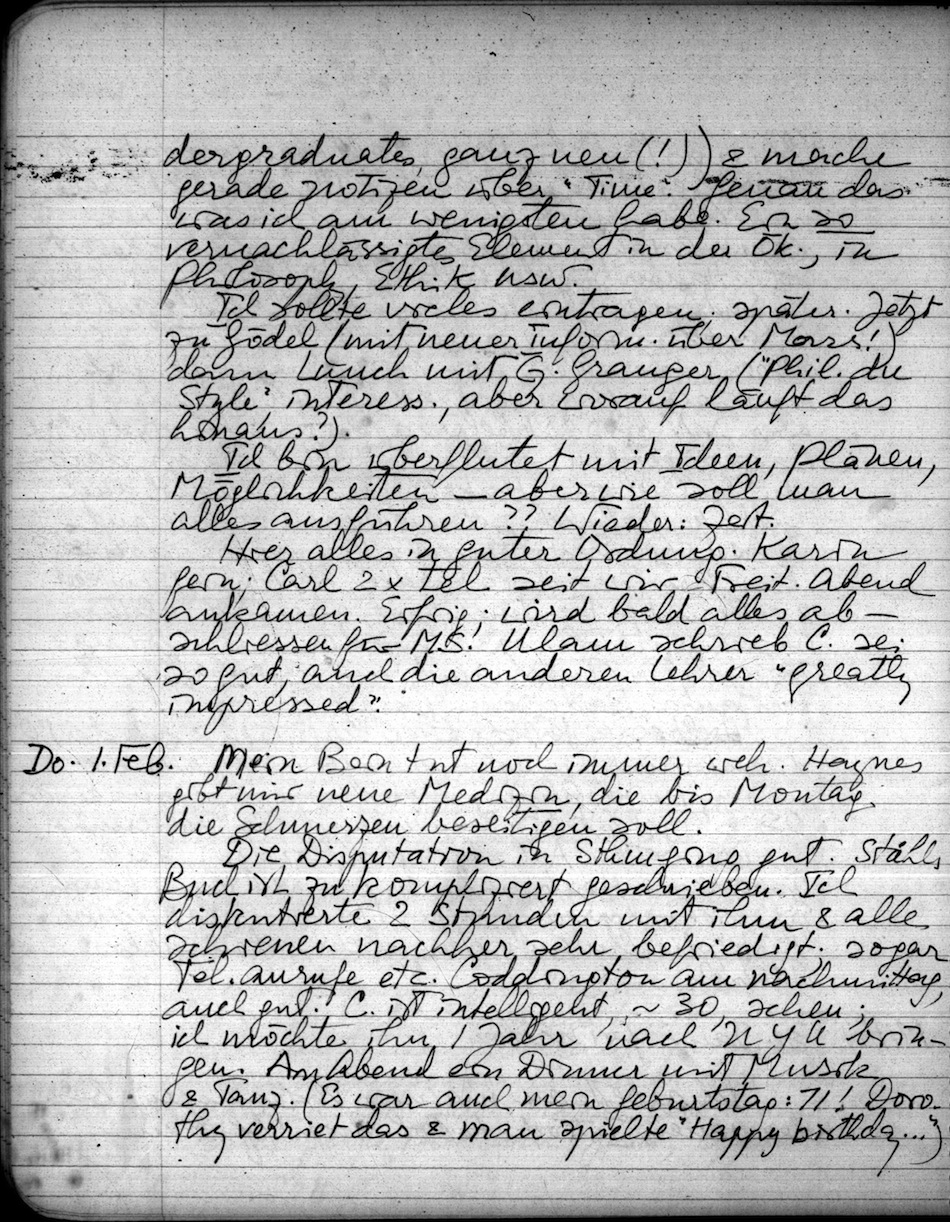 dergraduates, ganz neu (!)) & mache
gerade Notizen über "Time". Genau das
was ich am wenigsten habe. Ein so
vernachlässigtes Element in der Ök., in
Philosoph., Ethik usw.
Ich sollte vieles eintragen; später. Jetzt
zu Gödel (mit neuer Inform. über Morss!)
dann Lunch mit G. Granger ("Phil. du
Style", interess., aber worauf läuft das
hinaus?).
Ich bin überflutet mit Ideen, Plänen,
Möglichkeiten – aber wie soll man
alles ausführen?? Wieder: Zeit.
Hier alles in guter Ordnung. Karin
gern; Carl 2x Tel seit wir Freit. Abend
ankamen. Eifrig; wird bald alles ab-
schliessen für M.S.! Ulam schrieb C. sei
so gut, auch die anderen Lehrer "greatly
impressed".
Do. 1. Feb. Mein Bein tut noch immer weh. Haynes
gibt mir neue Medizin, die bis Montag
die Schmerzen beseitigen soll.
Die Disputation in gut. Ståhls
Buch ist zu kompliziert geschrieben. Ich
diskutierte 2 Stunden mit ihm & alle
schienen nachher sehr befriedigt; sogar
Tel. anrufe etc. Coddington am Nachmittag,
auch gut. C. ist intelligent, ~ 30, scheu;
ich möchte ihn 1 Jahr nach NYU brin-
gen. Am Abend ein Dinner mit Musik
& Tanz. (Es war auch mein Geburtstag: 71! Doro-
thy verriet das & man spielte "Happy birthday...")